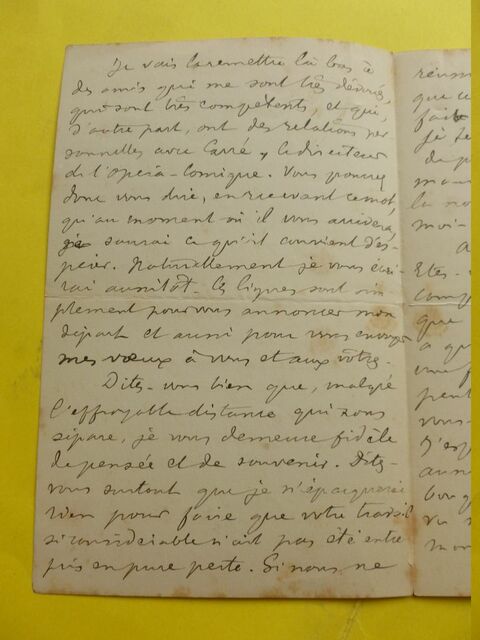 Je vais la remettre là bas à
des amis qui me sont très dévoués,
qui sont très compétents, et qui,
d'autre part, ont des relations per
sonnelles avec Carré, le directeur
de l'Opéra-Comique. Vous pouvez
donc vous dire, en recevant ce mot,
qu'au moment où il vous arrivera,
je saurai ce qu'il convient d'es-
pérer. Naturellement je vous écri-
rai aussitôt. Ces lignes sont sim
plement pour vous annoncer mon
départ et aussi pour vous envoyer
mes vœux à vous et aux vôtres.
Dites-vous bien que, malgré
l'effroyable distance qui nous
sépare, je vous demeure fidèle
de pensée et de souvenir. Dites-
vous surtout que je n'épargnerai
rien pour faire que votre travail
si considérable n'ait pas été entre
pris en pure perte. Si nous ne
réuss
que c
fait
je te
de p
mo
la no
moi-
A
Etes-
comp
que
a qu
vous
peut
vous
d'esp
ann
bon
vu
mon